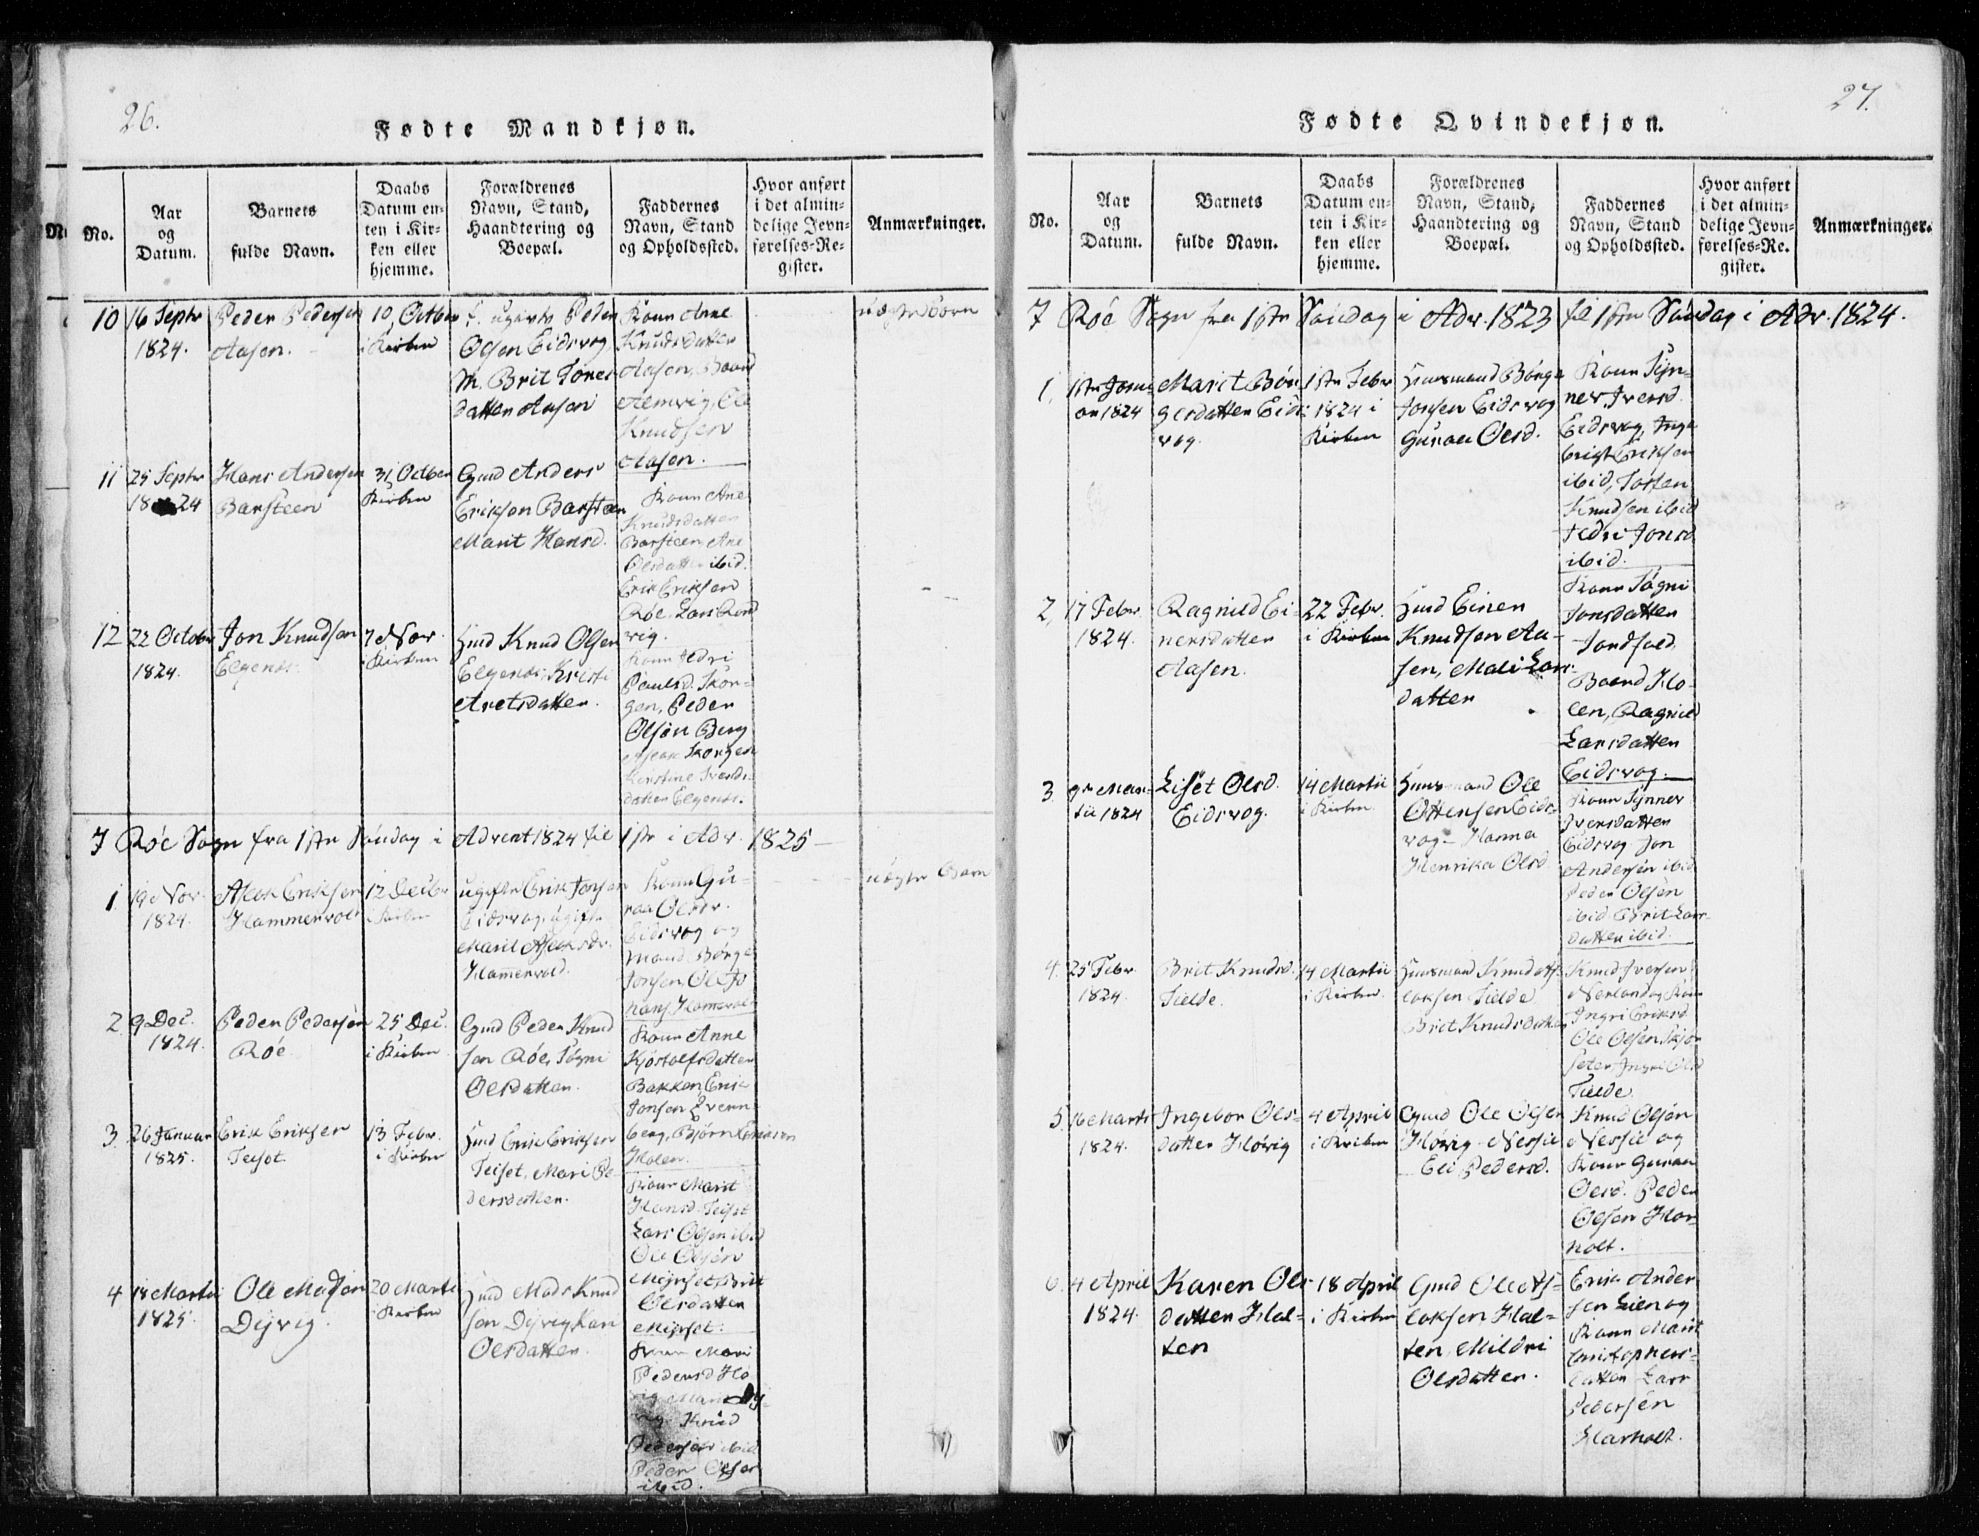 26.
Fødte Mandkjøn.
No.
Aar
og
Datum.
Barnets
fulde Navn.
Daabs
Datum en-
ten i Kir-
ken eller
hjemme.
Forældrenes
Navn, Stand,
Haandtering og
Boepæl.
Faddernes
Navn, Stand
og Opholdssted.
Hvor anført
i det almin-
delige Jevn-
førelses-Re-
gister.
Anmærkninger.
10
16 Septr
1824.
Peder Pedersen
Aasen.
10 Octber
i Kirken
ugivte Peder
Olsen Eidsvog
M. Brit Tores
datter Aasen
Kone Ane
Knudsdatter
Aasen, Baard
Ole
Knudsen
Aasen.
uægte Børn
11
25 Septr
1824
Hans Andersen
Barsteen
31 Octber
Kirken
Gmd Anders
Eriksen Barsteen
Marit Hansd.
Kone Ane
Knudsdatter
Barsteen, Ane
Olsdatter ibid.
Erik Eriksen
Røe. Lars
vig.
12
22 October
1824.
Jon Knudsen
Elgenes.
7 Nov.
i Kirken
Hmd Knud Olsen
Elgenes, Kristi
Aretsdatter.
Kone Sedri
Paulsd. Skor-
gen, Peder
Olsøn Berg
Skorgen
Kirstine Iversds-
datter Elgenes.
7 Røe Sogn fra 1ste Søndag i Advent 1824 til 1ste i Adv. 1825
1
19 Nov.
1824.
Aslak Eriksen
Hammervold
12 Decbr
i Kirken
ugifte Erik Jonsen
Eidsvog, ugifte
Marit Aslaksdr.
Hamervold.
Kone Gu-
roa Olsdr.
Eidsvog og
Mand Børge
Jonsen, Ole Jo
hans. Hamervold
uægte Barn
2.
9 Dec.
1824.
Peder Pedersøn
Røe
25 Dec.
i Kirken
Gmd Peder Knud
sen Røe, Søgni
Olsdatter.
Kone Anne
Kjøstolfsdatter
Bakken, Erik
Jonsen Evern-
berg, Bjørn Eriksen
Holen.
3
26 Januar
1825.
Erik Eriksen
Teiset
13 Febr.
i Kirken
Hmd Erik Eriksen
Teiset, Mari Pe
dersdatter.
Kone Marit
Hansd. Teiset
Lars Olsen ibid
Ole Olsøn
Meisset, Brit
Olsdatter
Meisset.
4
18 Martii
1825
Ole Madsøn
Dyvig.
20 Martii
i Kirken
Hmd Mads Knud
sen Dyvig, Kari
Olsdatter.
Kone Mari
Pedersd Hø
vig
Knud
Pedersøn ibid
Peder Olsen
ibid.
27.
Fødte Qvindekjøn.
No.
Aar
og
Datum.
Barnets
fulde Navn.
Daabs
Datum en-
ten i Kir-
ken eller
hjemme.
Forældrenes
Navn, Stand,
Haandtering og
Boepæl.
Faddernes
Navn, Stand
og Opholdssted.
Hvor anført
i det almin-
delige Jevn-
førelses-Re-
gister.
Anmærkninger.
7 Røe Sogn fra 1ste Søndag i Adv. 1823 til 1ste Søndag i Adv. 1824.
1.
1ste Janu
ar 1824
Marit Bør-
gesdatter Eids
vog.
1ste Febr
1824 i
Kirken
Huusmand Børge
Jonsen Eidsvog
Guroa Olsd.
Kone Syn-
nev Iversd.
Eidsvog, Inge
brigt Eriksen
ibid, Torsten
Knudsen ibid
Sedri Jonsd
ibid.
2.
17 Febr.
1824.
Ragnild Ei-
nersdatter
Aasen.
22 Febr.
i Kirken
Hmd Einer
Knudsen Aa-
sen, Mali Lars-
datter
Kone Søgni
Jonsdatter
Baard Ho-
len, Ragnild
Larsdatter
Eidsvog.
3
9de Mar-
tii 1824
Liset Olsd.
Eidsvog.
14 Martii
i Kirken.
Huusmand Ole
Ottersen Eids-
vog - Hanna
Henrika Olsd
Kone Synnev
Iversdatter
Eidsvog Jon
Andersøn ibid
Peder Olsen
ibid Brit Lars-
datter ibid.
4.
25 Febr.
1824.
Brit Knudsd.
Tielde.
14 Martii
i Kirken.
Huusmand Knud As-
laksen Tielde
Brit Knudsdatter
Knud Iversen
Nerland og Kone
Ingri Eriksd.
Ole Olsen Skjør
seter, Ingri Olsd
Tielde.
5.
16 Marti
1824.
Ingebor Ols-
datter Høvig
4 April
i Kirken
Gmd Ole Olsen
Høvig - Nessie
Eli Pedersd.
Knud Olsøn
Nessie og
Kone Guroa
Olsd. Peder
Olsen Har-
holt.
6.
4 April
1824.
Karen Ols-
datter Hal-
ten
18 April
i Kirken
Gmd Ole As-
laksen Hal-
ten, Mildri
Olsdatter.
Erik Ander
sen Lien og
Kone Marit
Christophers-
datter Lars
Pedersen
Harholt.